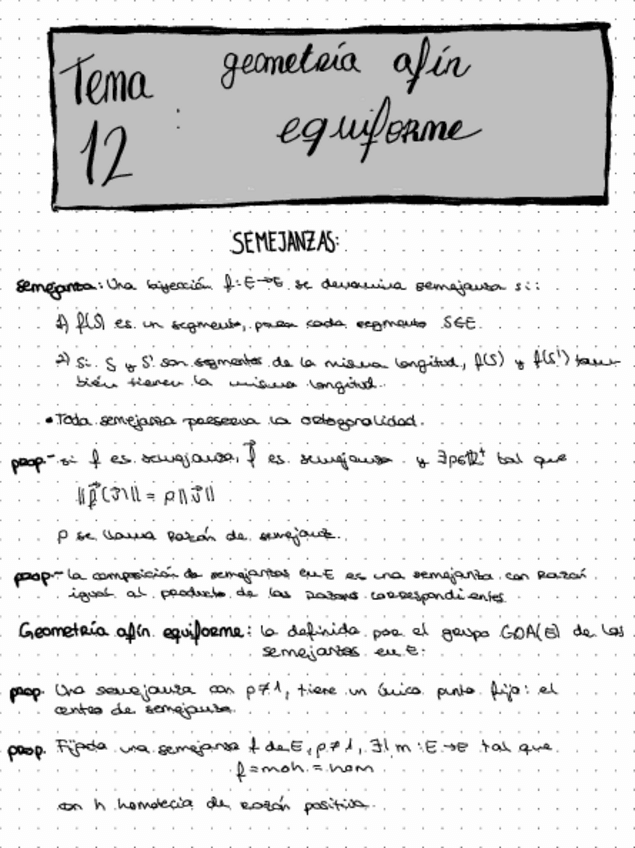 Tema geometría afín
12 : equiforme
SEMEJANZAS:
semejanza: Una biyección f: E→E se denomina semejanza si:
1) f(S) es un segmento, para cada segmento S∈E.
2) Si S y S' son segmentos de la misma longitud, f(S) y f(S') tam-
bién tienen la misma longitud.
• Toda semejanza preserva la ortogonalidad.
prop.- si f es semejanza, f⃗ es semejanza y ∃ρ∈ℝ⁺ tal que
||f⃗(v⃗)|| = ρ||v⃗||
ρ se llama razón de semejanz.
prop.- la composición de semejanzas en E es una semejanza con razón
igual al producto de las razones correspondientes
Geometría afín equiforme: la definida por el grupo GDA(E) de las
semejanzas en E.
prop. Una semejanza con ρ≠1, tiene un único punto fijo: el
centro de semejanza.
prop. Fijada una semejanza f de E, ρ≠1, ∃! m: E→E tal que
f = m∘h = h∘m
con h homotecia de razón positiva.